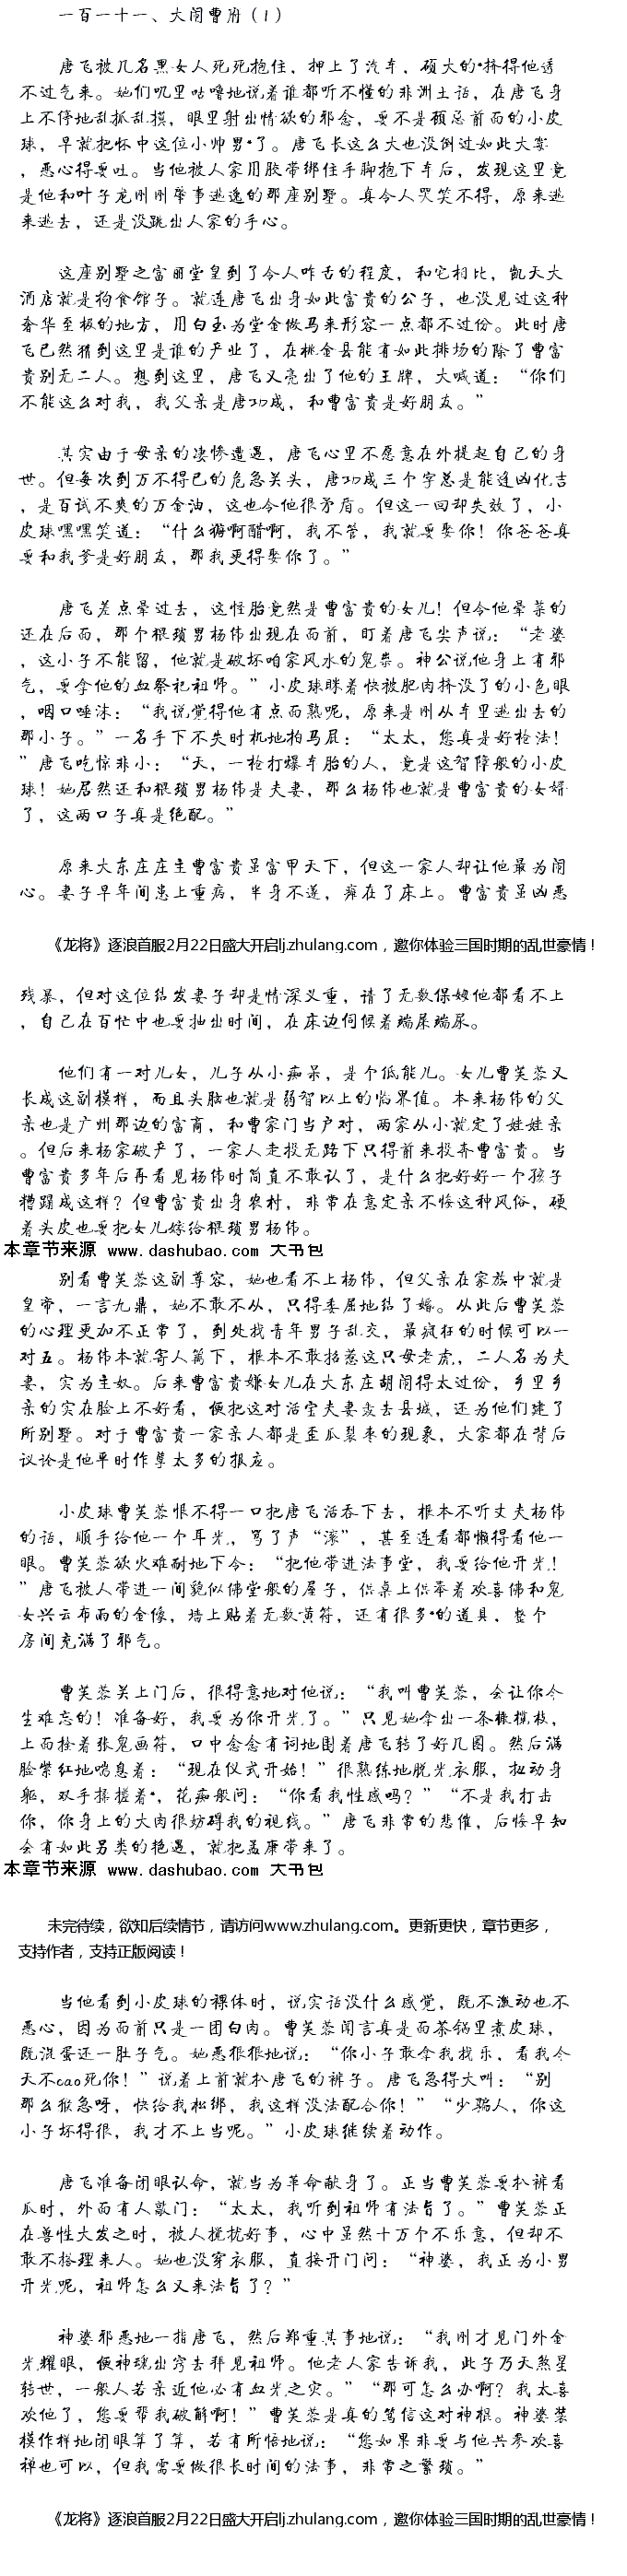 一百一十一、大闹曹府（1）
唐飞被几名黑女人死死抱住，押上了汽车，硕大的•挤得他透
不过气来。她们叽里咕噜地说着谁都听不懂的非洲土话，在唐飞身
上不停地乱抓乱摸，眼里射出情欲的邪念，要不是顾忌前面的小皮
球，早就把怀中这位小帅男•了。唐飞长这么大也没倒过如此大霉
，恶心得要吐。当他被人家用胶带绑住手脚抱下车后，发现这里竟
是他和叶子龙刚刚举事逃逸的那座别墅。真令人哭笑不得，原来逃
来逃去，还是没跳出人家的手心。
这座别墅之富丽堂皇到了令人咋舌的程度，和它相比，凯天大
酒店就是狗食馆子。就连唐飞出身如此富贵的公子，也没见过这种
奢华至极的地方，用白玉为堂金做马来形容一点都不过份。此时唐
飞已然猜到这里是谁的产业了，在桃金县能有如此排场的除了曹富
贵别无二人。想到这里，唐飞又亮出了他的王牌，大喊道：“你们
不能这么对我，我父亲是唐功成，和曹富贵是好朋友。”
其实由于母亲的凄惨遭遇，唐飞心里不愿意在外提起自己的身
世。但每次到万不得已的危急关头，唐功成三个字总是能逢凶化吉
，是百试不爽的万金油，这也令他很矛盾。但这一回却失效了，小
皮球嘿嘿笑道：“什么糖啊醋啊，我不管，我就要娶你！你爸爸真
要和我爹是好朋友，那我更得娶你了。”
唐飞差点晕过去，这怪胎竟然是曹富贵的女儿！但令他晕菜的
还在后面，那个猥琐男杨伟出现在面前，盯着唐飞尖声说：“老婆
，这小子不能留，他就是破坏咱家风水的鬼祟。神公说他身上有邪
气，要拿他的血祭祀祖师。”小皮球眯着快被肥肉挤没了的小色眼
，咽口唾沫：“我说觉得他有点面熟呢，原来是刚从车里逃出去的
那小子。”一名手下不失时机地拍马屁：“太太，您真是好枪法！
”唐飞吃惊非小：“天，一枪打爆车胎的人，竟是这智障般的小皮
球！她居然还和猥琐男杨伟是夫妻，那么杨伟也就是曹富贵的女婿
了，这两口子真是绝配。”
原来大东庄庄主曹富贵虽富甲天下，但这一家人却让他最为闹
心。妻子早年间患上重病，半身不遂，瘫在了床上。曹富贵虽凶恶
《龙将》逐浪首服2月22日盛大开启lj.zhulang.com，邀你体验三国时期的乱世豪情！
残暴，但对这位结发妻子却是情深义重，请了无数保姆他都看不上
，自己在百忙中也要抽出时间，在床边伺候着端屎端尿。
他们有一对儿女，儿子从小痴呆，是个低能儿。女儿曹芙蓉又
长成这副模样，而且头脑也就是弱智以上的临界值。本来杨伟的父
亲也是广州那边的富商，和曹家门当户对，两家从小就定了娃娃亲
。但后来杨家破产了，一家人走投无路下只得前来投奔曹富贵。当
曹富贵多年后再看见杨伟时简直不敢认了，是什么把好好一个孩子
糟蹋成这样？但曹富贵出身农村，非常在意定亲不悔这种风俗，硬
着头皮也要把女儿嫁给猥琐男杨伟。
本章节来源 www.dashubao.com 大书包
别看曹芙蓉这副尊容，她也看不上杨伟，但父亲在家族中就是
皇帝，一言九鼎，她不敢不从，只得委屈地结了婚。从此后曹芙蓉
的心理更加不正常了，到处找青年男子乱交，最疯狂的时候可以一
对五。杨伟本就寄人篱下，根本不敢招惹这只母老虎，二人名为夫
妻，实为主奴。后来曹富贵嫌女儿在大东庄胡闹得太过份，乡里乡
亲的实在脸上不好看，便把这对活宝夫妻轰去县城，还为他们建了
所别墅。对于曹富贵一家亲人都是歪瓜裂枣的现象，大家都在背后
议论是他平时作孽太多的报应。
小皮球曹芙蓉恨不得一口把唐飞活吞下去，根本不听丈夫杨伟
的话，顺手给他一个耳光，骂了声“滚”，甚至连看都懒得看他一
眼。曹芙蓉欲火难耐地下令：“把他带进法事堂，我要给他开光！
”唐飞被人带进一间貌似佛堂般的屋子，供桌上供奉着欢喜佛和鬼
女兴云布雨的金像，墙上贴着无数黄符，还有很多•的道具，整个
房间充满了邪气。
曹芙蓉关上门后，很得意地对他说：“我叫曹芙蓉，会让你今
生难忘的！准备好，我要为你开光了。”只见她拿出一条橄榄枝，
上面拴着张鬼画符，口中念念有词地围着唐飞转了好几圈。然后满
脸紫红地喘息着：“现在仪式开始！”很熟练地脱光衣服，扭动身
躯，双手揉搓着•，花痴般问：“你看我性感吗？”“不是我打击
你，你身上的大肉很妨碍我的视线。”唐飞非常的悲催，后悔早知
会有如此另类的艳遇，就把孟康带来了。
本章节来源 www.dashubao.com 大书包
未完待续，欲知后续情节，请访问www.zhulang.com。更新更快，章节更多，
支持作者，支持正版阅读！
当他看到小皮球的裸体时，说实话没什么感觉，既不激动也不
恶心，因为面前只是一团白肉。曹芙蓉闻言真是面茶锅里煮皮球，
既混蛋还一肚子气。她恶狠狠地说：“你小子敢拿我找乐，看我今
天不cao死你！”说着上前就扒唐飞的裤子。唐飞急得大叫：“别
那么猴急呀，快给我松绑，我这样没法配合你！”“少骗人，你这
小子坏得很，我才不上当呢。”小皮球继续着动作。
唐飞准备闭眼认命，就当为革命献身了。正当曹芙蓉要扒裤看
瓜时，外面有人敲门：“太太，我听到祖师有法旨了。”曹芙蓉正
在兽性大发之时，被人搅扰好事，心中虽然十万个不乐意，但却不
敢不搭理来人。她也没穿衣服，直接开门问：“神婆，我正为小男
开光呢，祖师怎么又来法旨了？”
神婆邪恶地一指唐飞，然后郑重其事地说：“我刚才见门外金
光耀眼，便神魂出窍去拜见祖师。他老人家告诉我，此子乃天煞星
转世，一般人若亲近他必有血光之灾。”“那可怎么办啊？我太喜
欢他了，您要帮我破解啊！”曹芙蓉是真的笃信这对神棍。神婆装
模作样地闭眼算了算，若有所悟地说：“您如果非要与他共参欢喜
禅也可以，但我需要做很长时间的法事，非常之繁琐。”
《龙将》逐浪首服2月22日盛大开启lj.zhulang.com，邀你体验三国时期的乱世豪情！